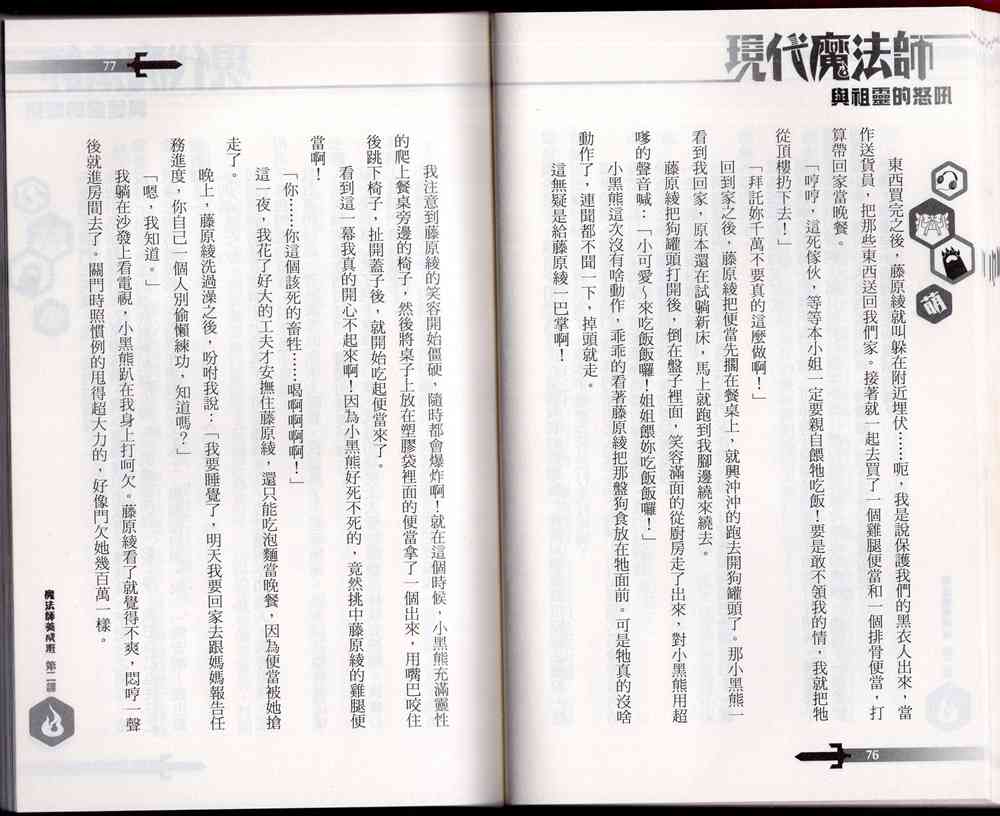 現代魔法師
與祖靈的怒吼
萌
東西買完之後，藤原綾就叫躲在附近埋伏……呃，我是說保護我們的黑衣人出來，當
作送貨員，把那些東西送回我們家。接著就一起去買了一個雞腿便當和一個排骨便當，打
算帶回家當晚餐。
「哼哼，這死傢伙，等等本小姐一定要親自餵牠吃飯！要是敢不領我的情，我就把牠
從頂樓扔下去！」
「拜託妳千萬不要真的這麼做啊！」
回到家之後，藤原綾把便當先擱在餐桌上，就興沖沖的跑去開狗罐頭了。那小黑熊一
看到我回家，原本還在試躺新床，馬上就跑到我腳邊繞來繞去。
藤原綾把狗罐頭打開後，倒在盤子裡面，笑容滿面的從廚房走了出來，對小黑熊用超
嗲的聲音喊：「小可愛，來吃飯飯囉！姐姐餵妳吃飯飯囉！」
小黑熊這次沒有啥動作，乖乖的看著藤原綾把那盤狗食放在牠面前。可是牠真的沒啥
動作了，連聞都不聞一下，掉頭就走。
這無疑是給藤原綾一巴掌啊！
76
77
我注意到藤原綾的笑容開始僵硬，隨時都會爆炸啊！就在這個時候，小黑熊充滿靈性
的爬上餐桌旁邊的椅子，然後將桌子上放在塑膠袋裡面的便當拿了一個出來，用嘴巴咬住
後跳下椅子，扯開蓋子後，就開始吃起便當來了。
看到這一幕我真的開心不起來啊！因為小黑熊好死不死的，竟然挑中藤原綾的雞腿便
當啊！
「你……你這個該死的畜牲……喝啊啊啊啊！」
這一夜，我花了好大的工夫才安撫住藤原綾，還只能吃泡麵當晚餐，因為便當被她搶
走了。
晚上，藤原綾洗過澡之後，吩咐我說：「我要睡覺了，明天我要回家去跟媽媽報告任
務進度，你自己一個人別偷懶練功，知道嗎？」
「嗯，我知道。」
我躺在沙發上看電視，小黑熊趴在我身上打呵欠。藤原綾看了就覺得不爽，悶哼一聲
後就進房間去了。關門時照慣例的甩得超大力的，好像門欠她幾百萬一樣。
魔法師養成班 第二課